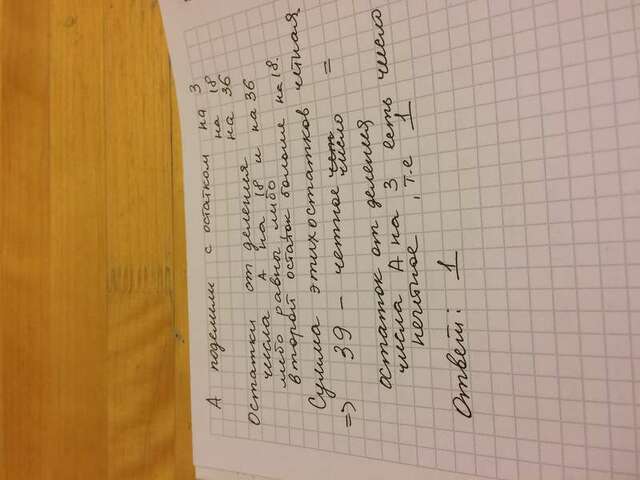 А поделили с остатком на 3
на 18
на 36
Остатки от деления
числа А на 18 и на 36
либо равны, либо
второй остаток больше на 18.
Сумма этих остатков чётная
=> 39 - четное число =
остаток от деления
числа А на 3 есть число
нечётное , т.е 1
Ответ: 1